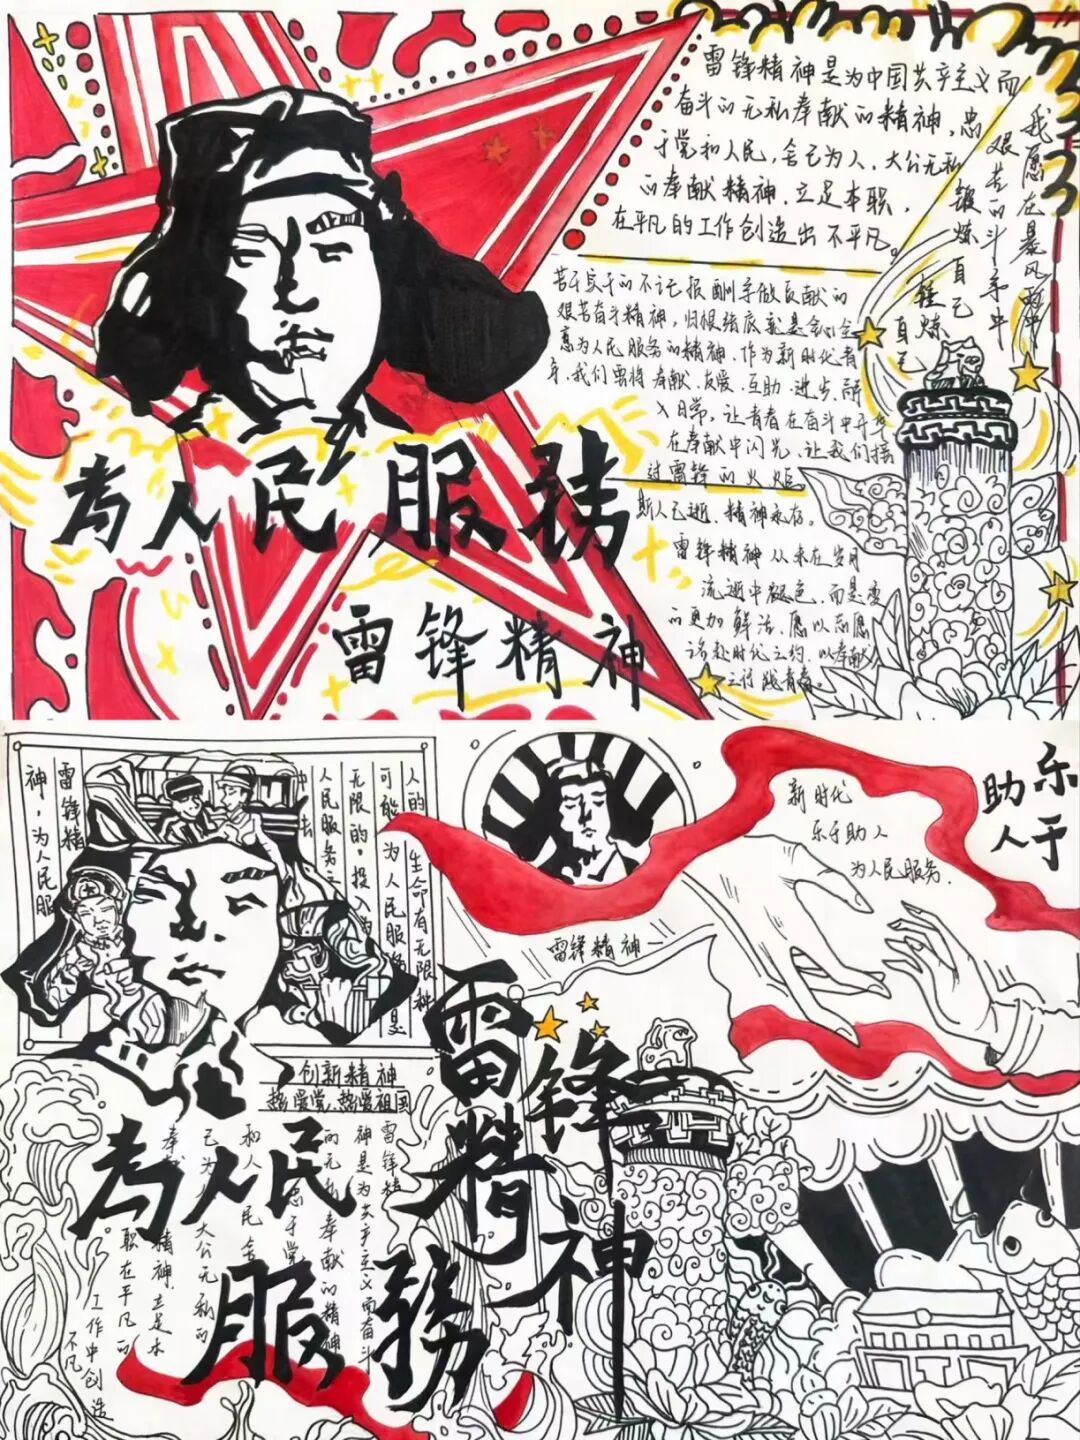 雷锋精神是为中国共产主义而
奋斗的无私奉献的精神，忠
于党和人民，舍己为人、大公无私
的奉献精神，立足本职，
在平凡的工作创造出不平凡。
我愿在暴风雨中
艰苦的斗争中
锻炼自己
自己
艰苦奋斗精神，归根结底就是全心全
意为人民服务的精神，作为新时代青
年，我们需将奉献、友爱、互助、进步、融
入日常，让青春在奋斗中
在奉献中闪光，让我们接
过雷锋的火炬
斯人已逝，精神永存。
雷锋精神从未在岁月
流逝中褪色，而是变
的更加鲜活，愿以志愿
诺赴时代之约，以奉献
之行践青春。
为人民服務
雷锋精神
人的生命有无限种
可能，为人民服务是
无限的，投入
人民服务之
中去
雷锋精
神，为人民服
创新精神
热爱党，热爱祖国
雷锋精神
新时代
乐于助人
为人民服务.
乐于
助人
雷锋精神
为人民
服務
雷锋精
神是为共产主义而奋斗
的无私奉献的精神
忠于党
和人民 舍
己为人 大公无私的
奉献精神 立足本
职在平凡的
工作中创造
不凡